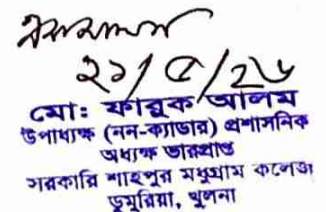 ২১/৫/২৬
মো: ফারুক আলম
উপাধ্যক্ষ (নন-ক্যাডার) প্রশাসনিক
অধ্যক্ষ ভারপ্রাপ্ত
সরকারি শাহপুর মধুগ্রাম কলেজ
ডুমুরিয়া, খুলনা